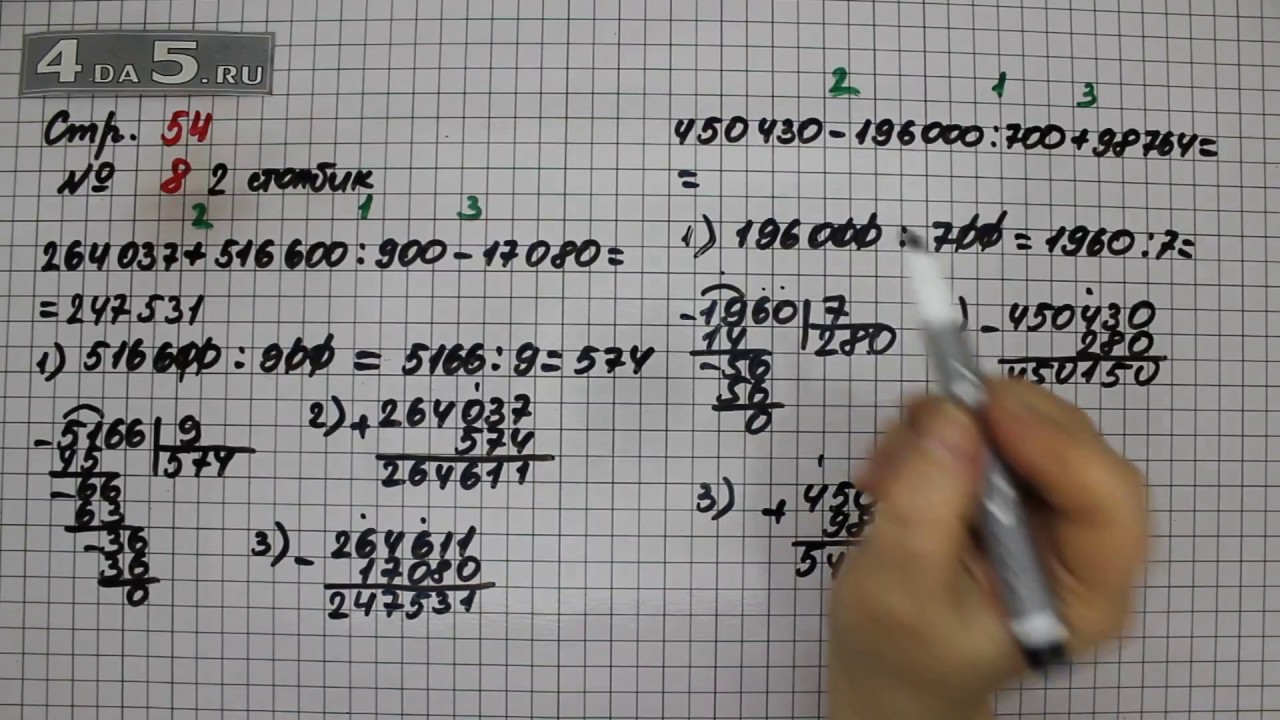 4DA5.RU
Стр. 54
№ 8 2 столбик
2 1 3
264037+516600:900-17080=
=247531
1) 516600:900=5166:9=574
-5166|9
45 574
-66
63
-36
36
0
2) +264037
574
264611
3) -264611
17080
247531
2 1 3
450430-196000:700+98764=
=
1) 196000:700=1960:7=
-1960|7
14 280
-56
56
0
) -450430
280
450150
3) +45
98
54